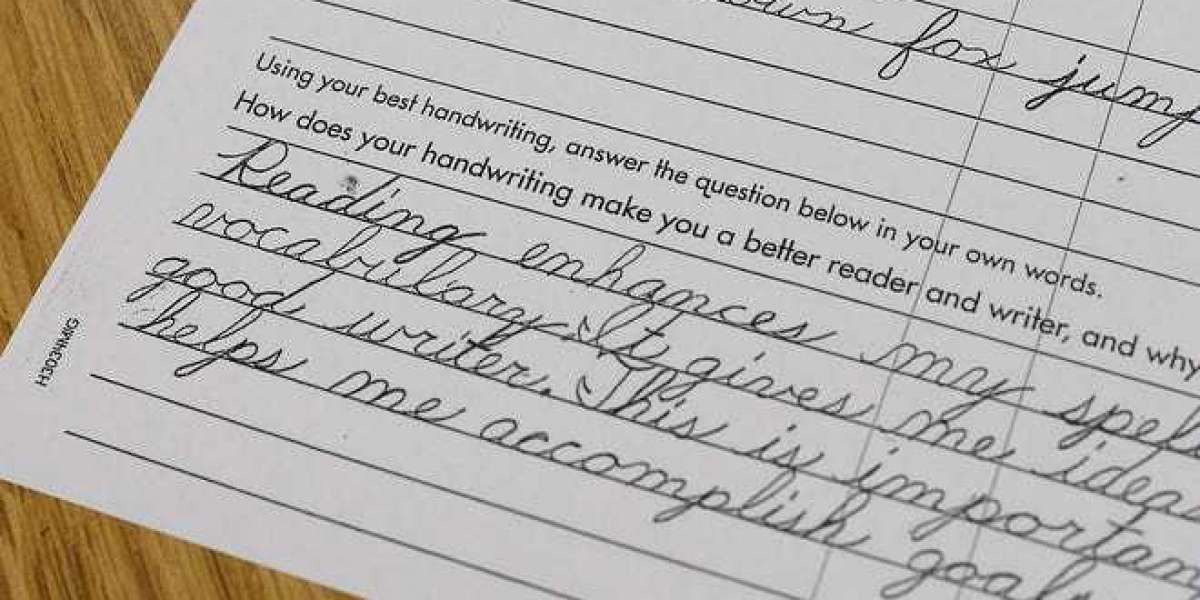 fox jump
Using your best handwriting, answer the question below in your own words.
How does your handwriting make you a better reader and writer, and why
Reading enhances my spel
vocabulary. It gives me idea
good writer. This is importan
helps me accomplish goal
H3034MG